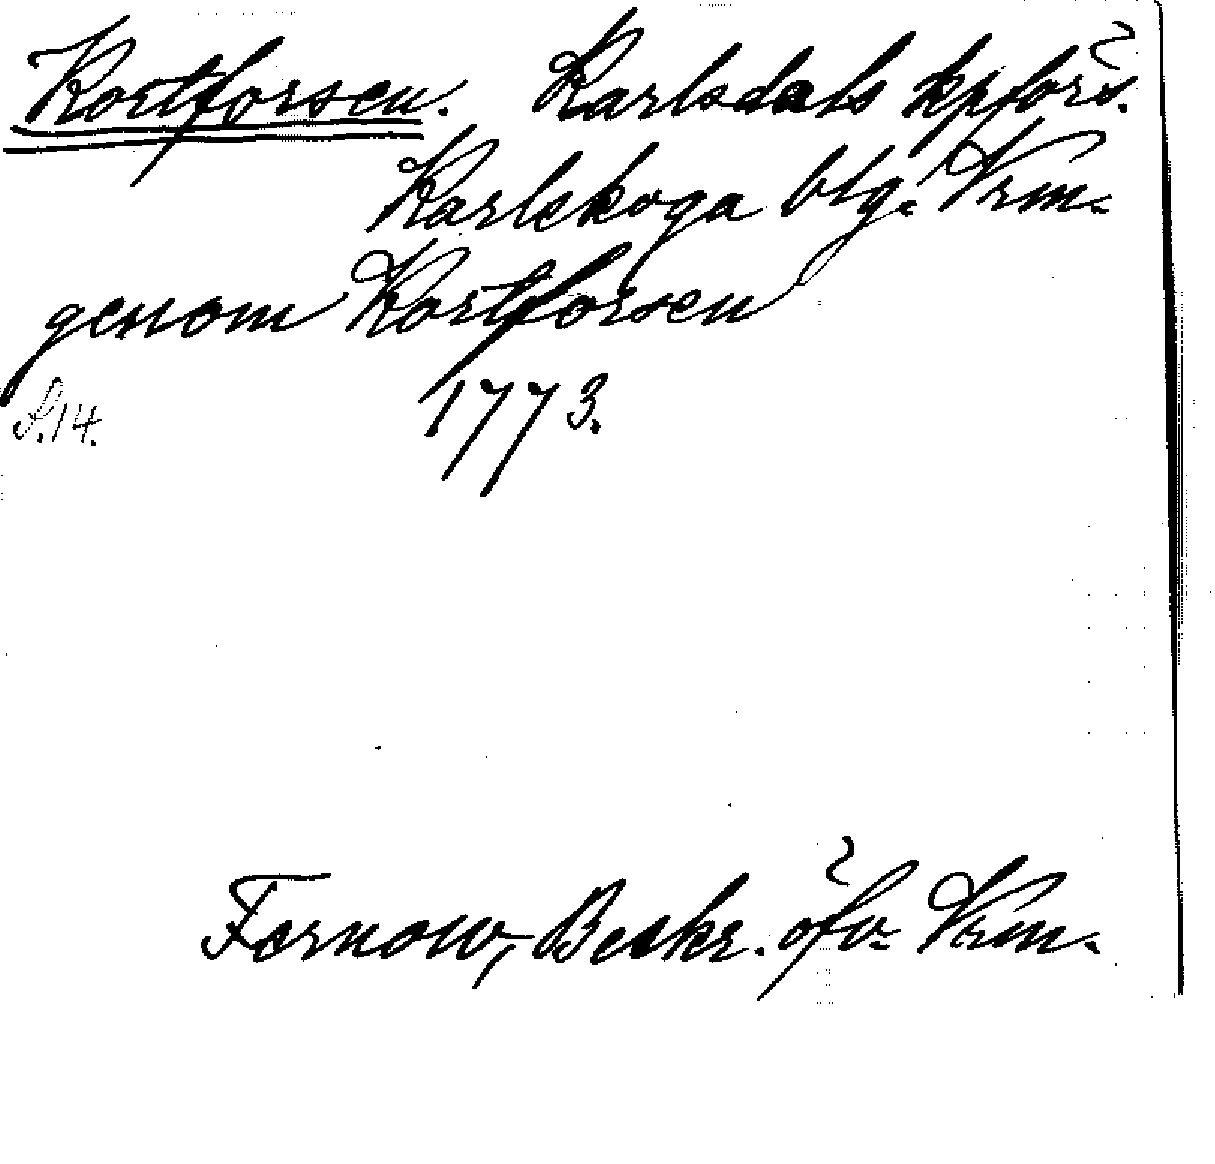 Kortforsen. Karlsdals kpförs.
Karlskoga btg. Vrm.
genom Kortforsen
S. 14. 1773.
Fernow, Beskr. öfv. Vrm.